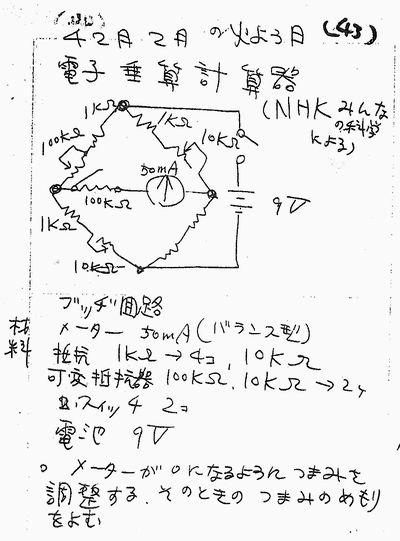 42月2月 の火よう日 (43)
電子計算器
(NHKみんな
の科学
による)
1KΩ
1KΩ
10KΩ
100KΩ
50mA
100KΩ
9V
1KΩ
10KΩ
ブッヂ回路
材料
メーター 50mA(バランス型)
抵抗 1KΩ→4コ, 10KΩ
可変抵抗器 100KΩ, 10KΩ→2ケ
スイッチ 2コ
電池 9V
○ メーターが0になるようにつまみを
調整する. そのときの つまみのめもり
をよむ